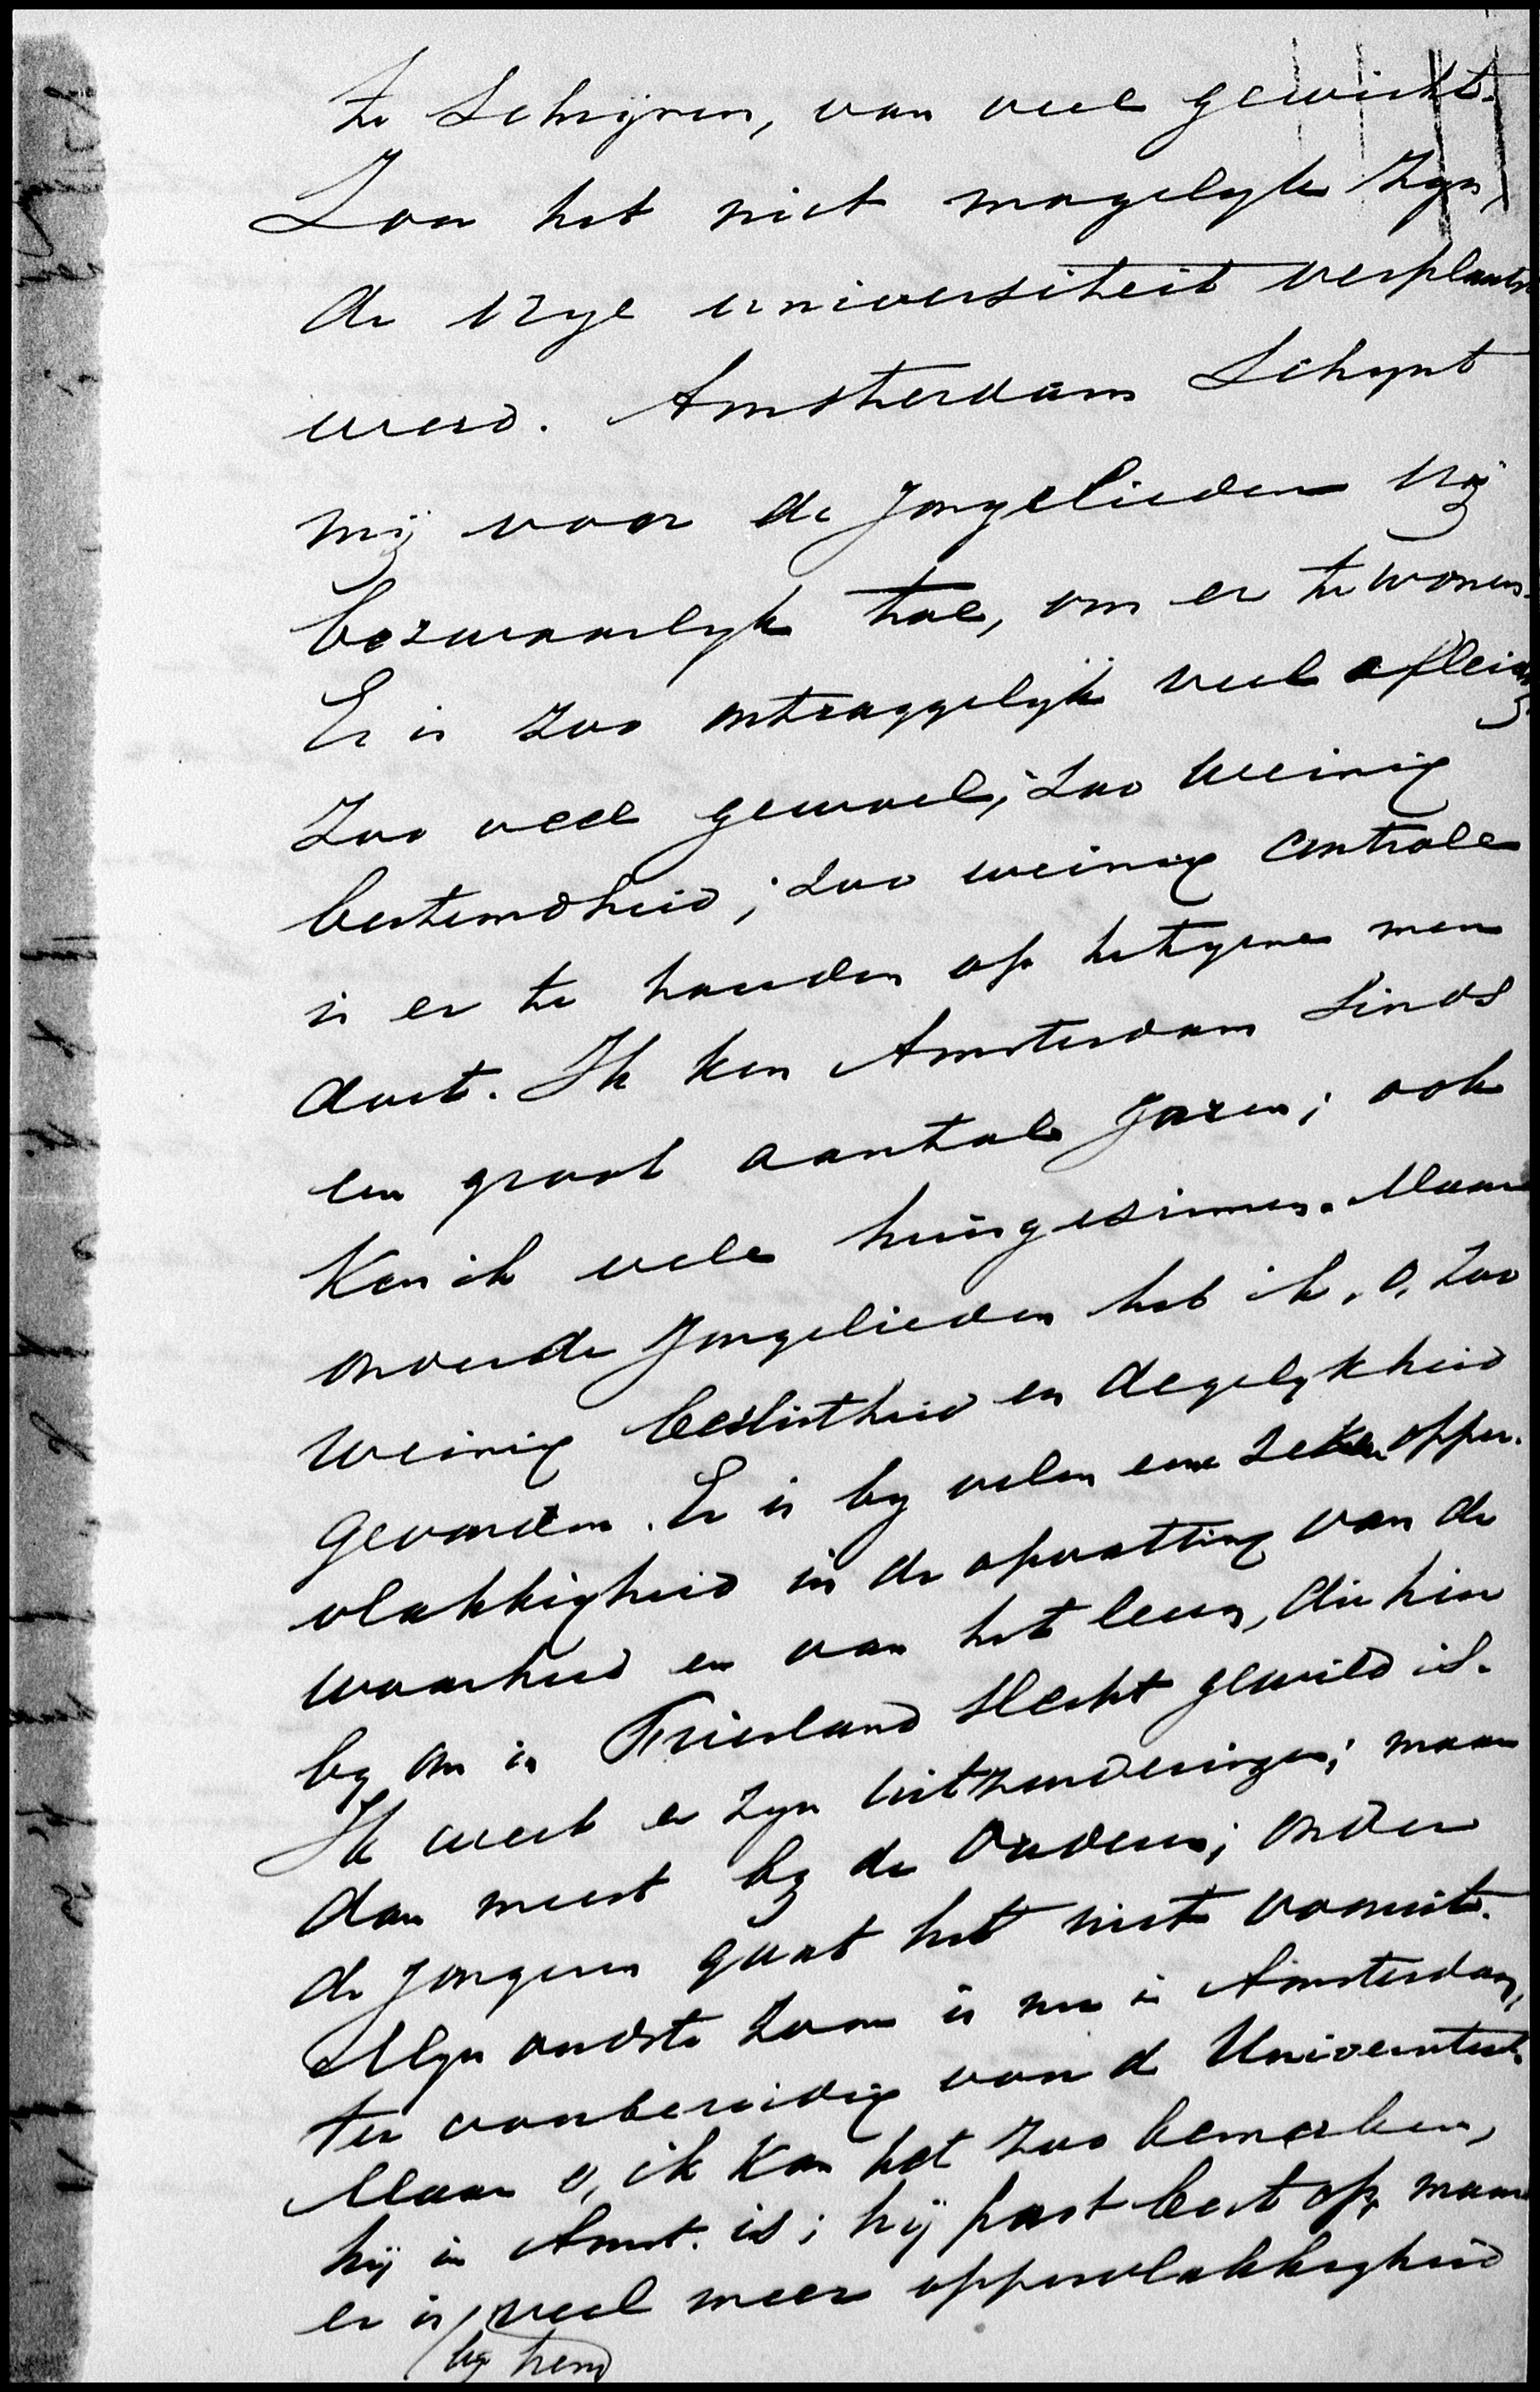 te schrijven, van veel gewicht.
Zou het niet mogelyk zyn,
de Vrye universiteit verplaatst
werd. Amsterdam schynt
mij voor de jongelieden vrij
bezwaarlyk toe, om er te wonen.
Er is zoo ontzaggelijk veel afleiding
zoo veel gewoel; zoo weinig
bestemdheid; zoo weinig controle
is er te houden op hetgene men
doet. Ik ken Amsterdam sinds
een groot aantal jaren; ook
ken ik vele huisgezinnen. Maar
onder de jongelieden heb ik, o, zoo
weinig beslistheid en degelykheid
gevonden. Er is by velen eene zekere opper-
vlakkigheid in de opvatting van de
waarheid en van het leven, die hier
by ons in Friesland slecht gewild is.
Ik weet er zyn uitzonderingen; maar
dan meest by de ouderen; onder
de jongeren gaat het niet vooruit.
Myn oudste zoon is nu in Amsterdam,
ter voorbereidig van d Universiteit.
Maar o, ik kan het zoo bemerken,
hij in Amst. is; hij past best op, maar
er is veel meer oppervlakkigheid
by hem